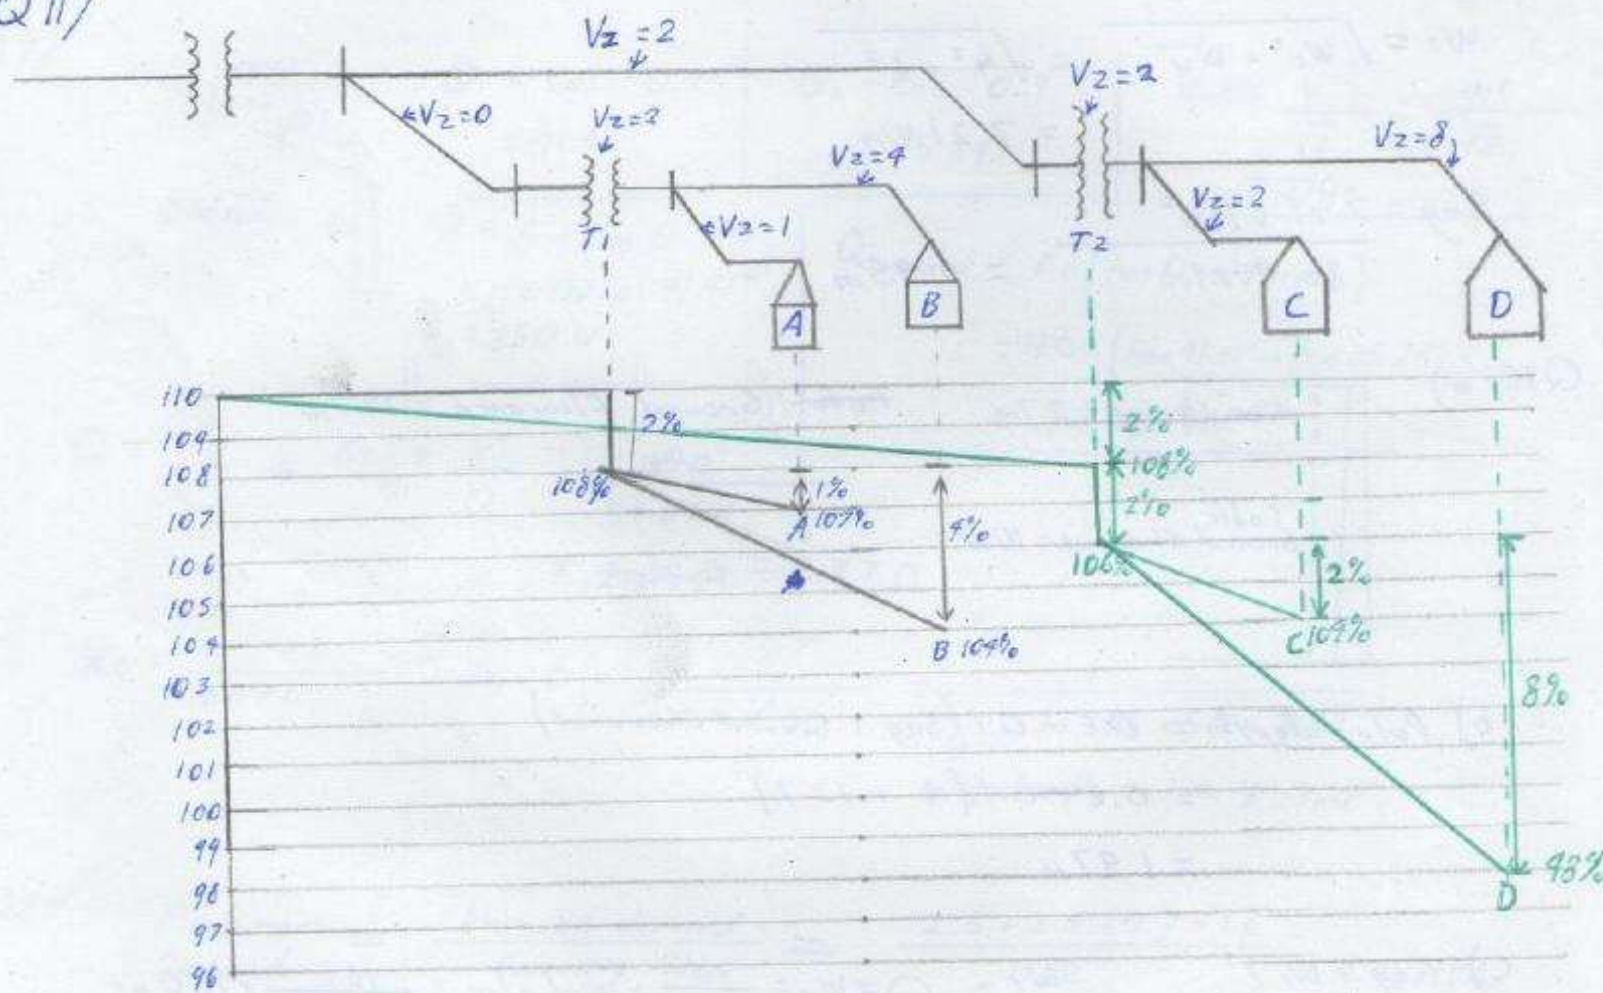 Q11/
Vz = 2
Vz=2
Vz=0
Vz=2
Vz=8
Vz=4
Vz=2
Vz=1
T1
T2
A
B
C
D
110
109
108
107
106
105
104
103
102
101
100
99
98
97
96
2%
108%
1%
A 107%
4%
B 104%
2%
108%
2%
106%
2%
C 104%
8%
98%
D